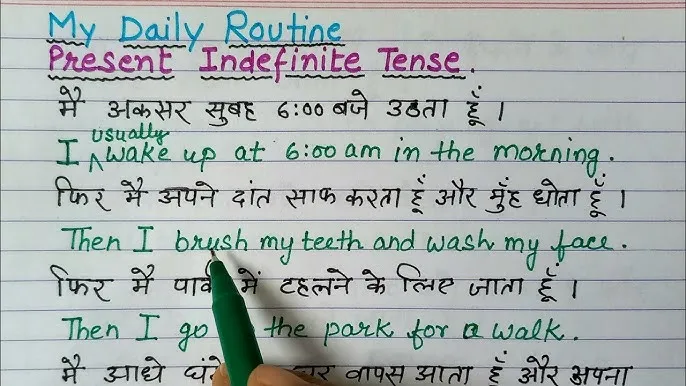 My Daily Routine
Present Indefinite Tense.
मै अकसर सुबह 6:00 बजे उठता हूँ ।
I usually wake up at 6:00 am in the morning.
फिर मै अपने दांत साफ करता हूँ और मुँह धोता हूँ ।
Then I brush my teeth and wash my face.
फिर मै में टहलने के लिए जाता हूँ ।
Then I go the park for a walk.
मै आधे वापस आता हूँ और अपना